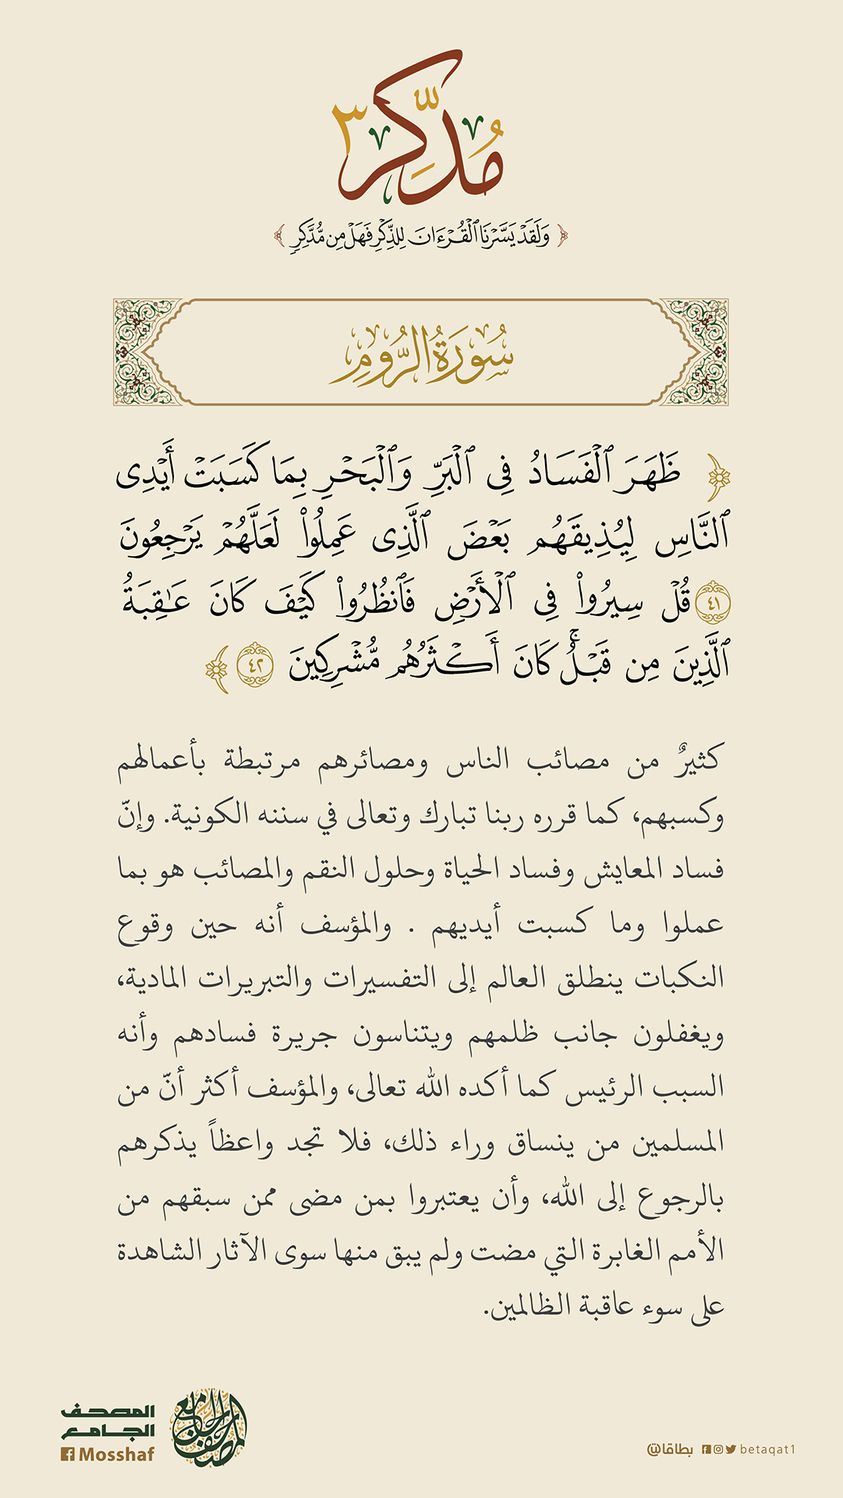 مُدَّكِر ٣
﴿ وَلَقَدْ يَسَّرْنَا ٱلْقُرْءَانَ لِلذِّكْرِ فَهَلْ مِن مُّدَّكِرٍ ﴾
سُورَةُ الرُّومِ
﴿ ظَهَرَ ٱلْفَسَادُ فِى ٱلْبَرِّ وَٱلْبَحْرِ بِمَا كَسَبَتْ أَيْدِى
ٱلنَّاسِ لِيُذِيقَهُم بَعْضَ ٱلَّذِى عَمِلُوا۟ لَعَلَّهُمْ يَرْجِعُونَ
٤١ قُلْ سِيرُوا۟ فِى ٱلْأَرْضِ فَٱنظُرُوا۟ كَيْفَ كَانَ عَـٰقِبَةُ
ٱلَّذِينَ مِن قَبْلُ ۚ كَانَ أَكْثَرُهُم مُّشْرِكِينَ ٤٢ ﴾
كثيرٌ من مصائب الناس ومصائرهم مرتبطة بأعمالهم
وكسبهم، كما قرره ربنا تبارك وتعالى في سننه الكونية. وإنّ
فساد المعايش وفساد الحياة وحلول النقم والمصائب هو بما
عملوا وما كسبت أيديهم . والمؤسف أنه حين وقوع
النكبات ينطلق العالم إلى التفسيرات والتبريرات المادية،
ويغفلون جانب ظلمهم ويتناسون جريرة فسادهم وأنه
السبب الرئيس كما أكده الله تعالى، والمؤسف أكثر أنّ من
المسلمين من ينساق وراء ذلك، فلا تجد واعظاً يذكرهم
بالرجوع إلى الله، وأن يعتبروا بمن مضى ممن سبقهم من
الأمم الغابرة التي مضت ولم يبق منها سوى الآثار الشاهدة
على سوء عاقبة الظالمين.
المصحف
الجامع
Mosshaf
المصحف الجامع
بطاقات
betaqat1